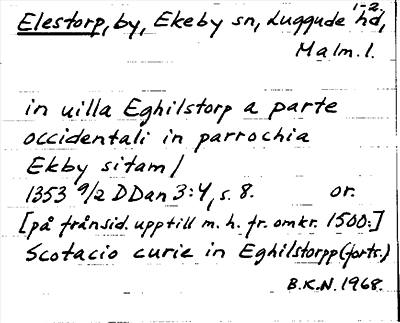 Elestorp, by, Ekeby sn, Luggude hd, 1-2
Malm. l.
in uilla Eghilstorp a parte
occidentali in parrochia
Ekby sitam/
1353 9/2 DDan 3:4, s. 8. or.
[på frånsid. upptill m. h. fr. omkr. 1500:]
Scotacio curie in Eghilstorpp (forts.)
B.K.N. 1968.